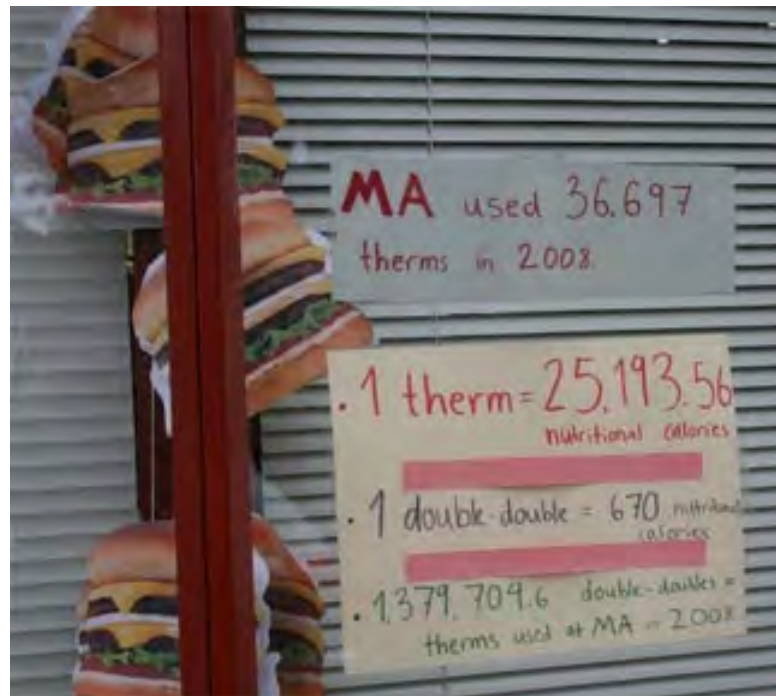 MA used 36,697
therms in 2008.
• 1 therm = 25,193.56
nutritional calories
• 1 double-double = 670 nutritional
calories
• 1,379,709.6 double-doubles =
therms used at MA in 2008